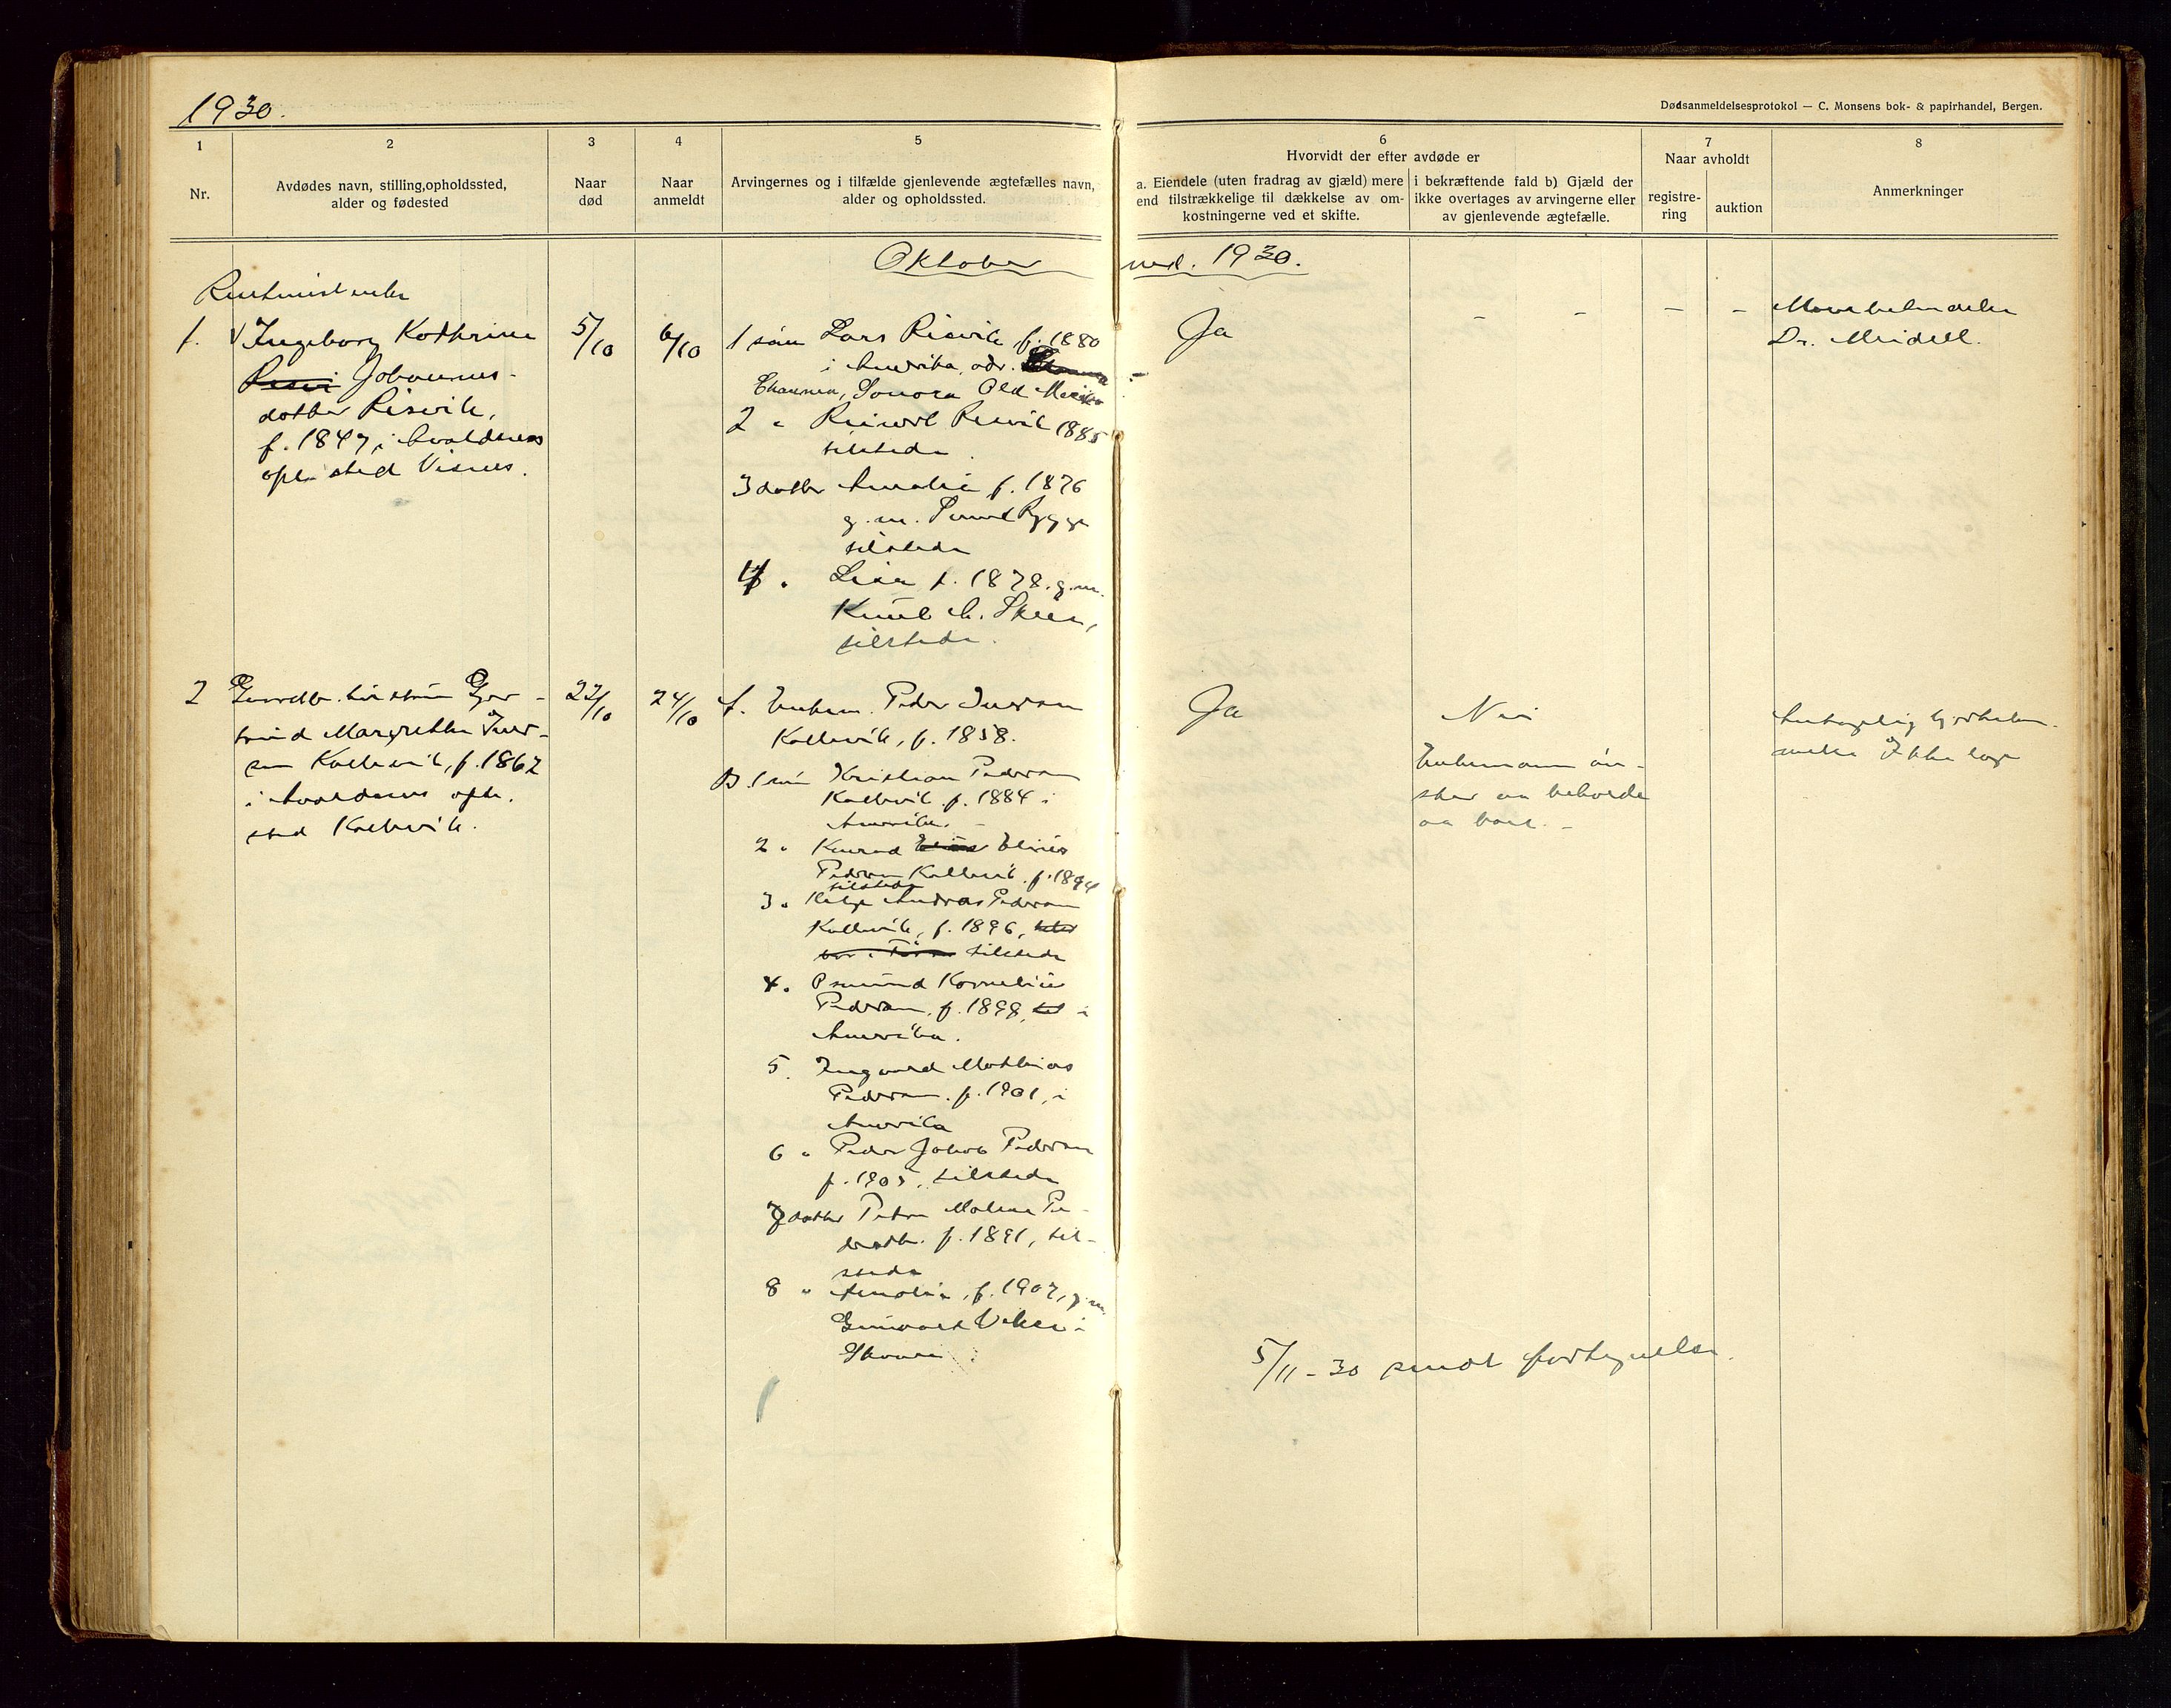 1930.
Dødsanmeldelsesprotokol — C. Monsens bok- & papirhandel, Bergen.
1
Nr.
2
Avdødes navn, stilling, opholdssted,
alder og fødested
3
Naar
død
4
Naar
anmeldt
5
Arvingernes og i tilfælde gjenlevende ægtefælles navn,
alder og opholdssted.
6
Hvorvidt der efter avdøde er
a. Eiendele (uten fradrag av gjæld) mere
end tilstrækkelige til dækkelse av om-
kostningerne ved et skifte.
i bekræftende fald b) Gjæld der
ikke overtages av arvingerne eller
av gjenlevende ægtefælle.
7
Naar avholdt
registre-
ring
auktion
8
Anmerkninger
Oktober md. 1930.
1.
Ingeborg Kathrine
Johannes-
datter Risvik,
f. 1847 i Avaldsnes
oph. sted Visnes.
5/10
6/10
1 søn Lars Risvik f. 1880
i Amerika, adr.
Sonora Old Mexiko
2 " Risvik 1885
tilstede
3 datter Amalie f. 1876
g.m. Rygge
tilstede
4 " Lisa f. 1878. g.m.
Knut A. Skeie,
tilstede.
Ja
- - - -
Dr. Meidell.
2
Margrethe Iver-
sen Kallevik, f. 1862
i Avaldsnes oph.
sted Kallevik.
22/10
24/10
Enkem. Peder Iversen
Kallevik, f. 1858.
B. 1 søn Kristian Pedersen
Kallevik f. 1884 i
Amerika.
2 " Konrad Elias
Pedersen Kallevik. f. 1894
tilstede
3 " Helge Andreas Pedersen
Kallevik, f. 1896,
tilstede
4 " Osmund Kornelius
Pedersen, f. 1899, i
Amerika.
5. Ingvard Mathias
Pedersen. f. 1901, i
Amerika
6 " Peder Jakob Pedersen
f. 1905, tilstede
7 datter Petra Malene Pe-
dersdtr. f. 1891, til-
stede
8 " Amalie, f. 1907, g.m.
i
Ja
Nei
Enkemann øn-
sker aa beholde
aa boet. -
Ikke
5/11 - 30 sendt fortegnelse.